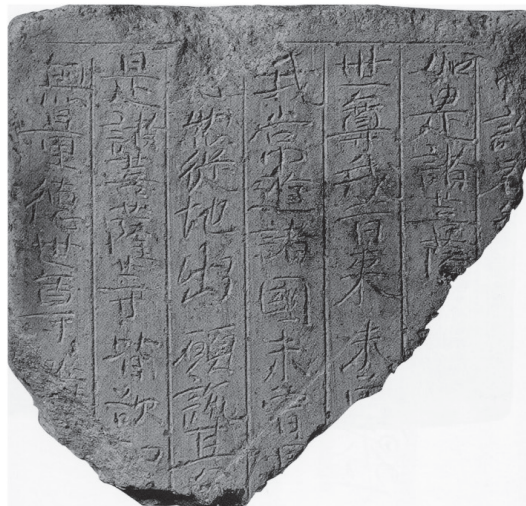 如是諸菩薩
世尊我昔来未
我常遊諸國未曾見
然從地出願說其
是諸菩薩等皆欲知
無量德世尊唯